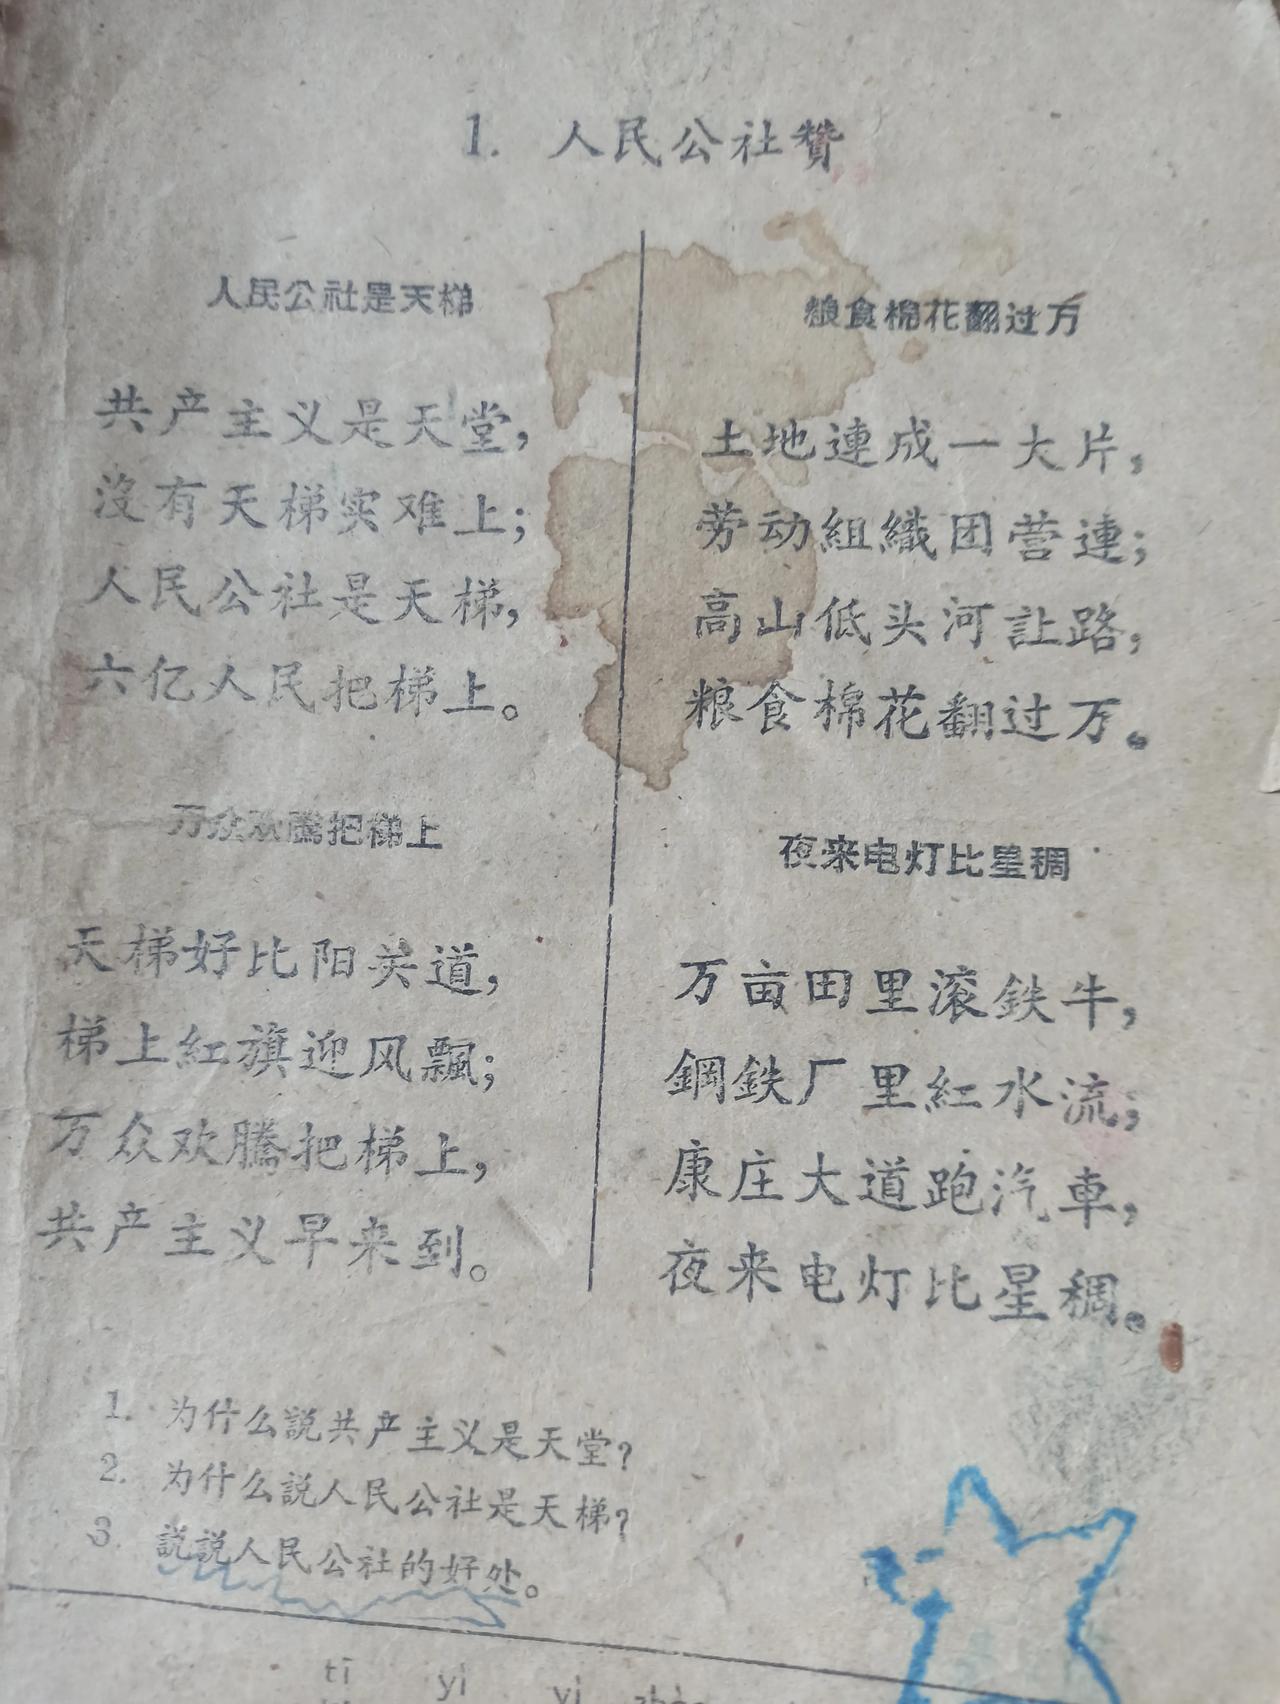 1. 人民公社贊
人民公社是天梯
共产主义是天堂，
沒有天梯实难上；
人民公社是天梯，
六亿人民把梯上。
万众欢騰把梯上
天梯好比阳关道，
梯上紅旗迎风飄；
万众欢騰把梯上，
共产主义早来到。
粮食棉花翻过万
土地連成一大片，
劳动組織团营連；
高山低头河讓路，
粮食棉花翻过万。
夜来电灯比星稠
万亩田里滚鉄牛，
鋼鉄厂里紅水流；
康庄大道跑汽車，
夜来电灯比星稠。
1. 为什么説共产主义是天堂？
2. 为什么説人民公社是天梯？
3. 説説人民公社的好处。
tī yì yì